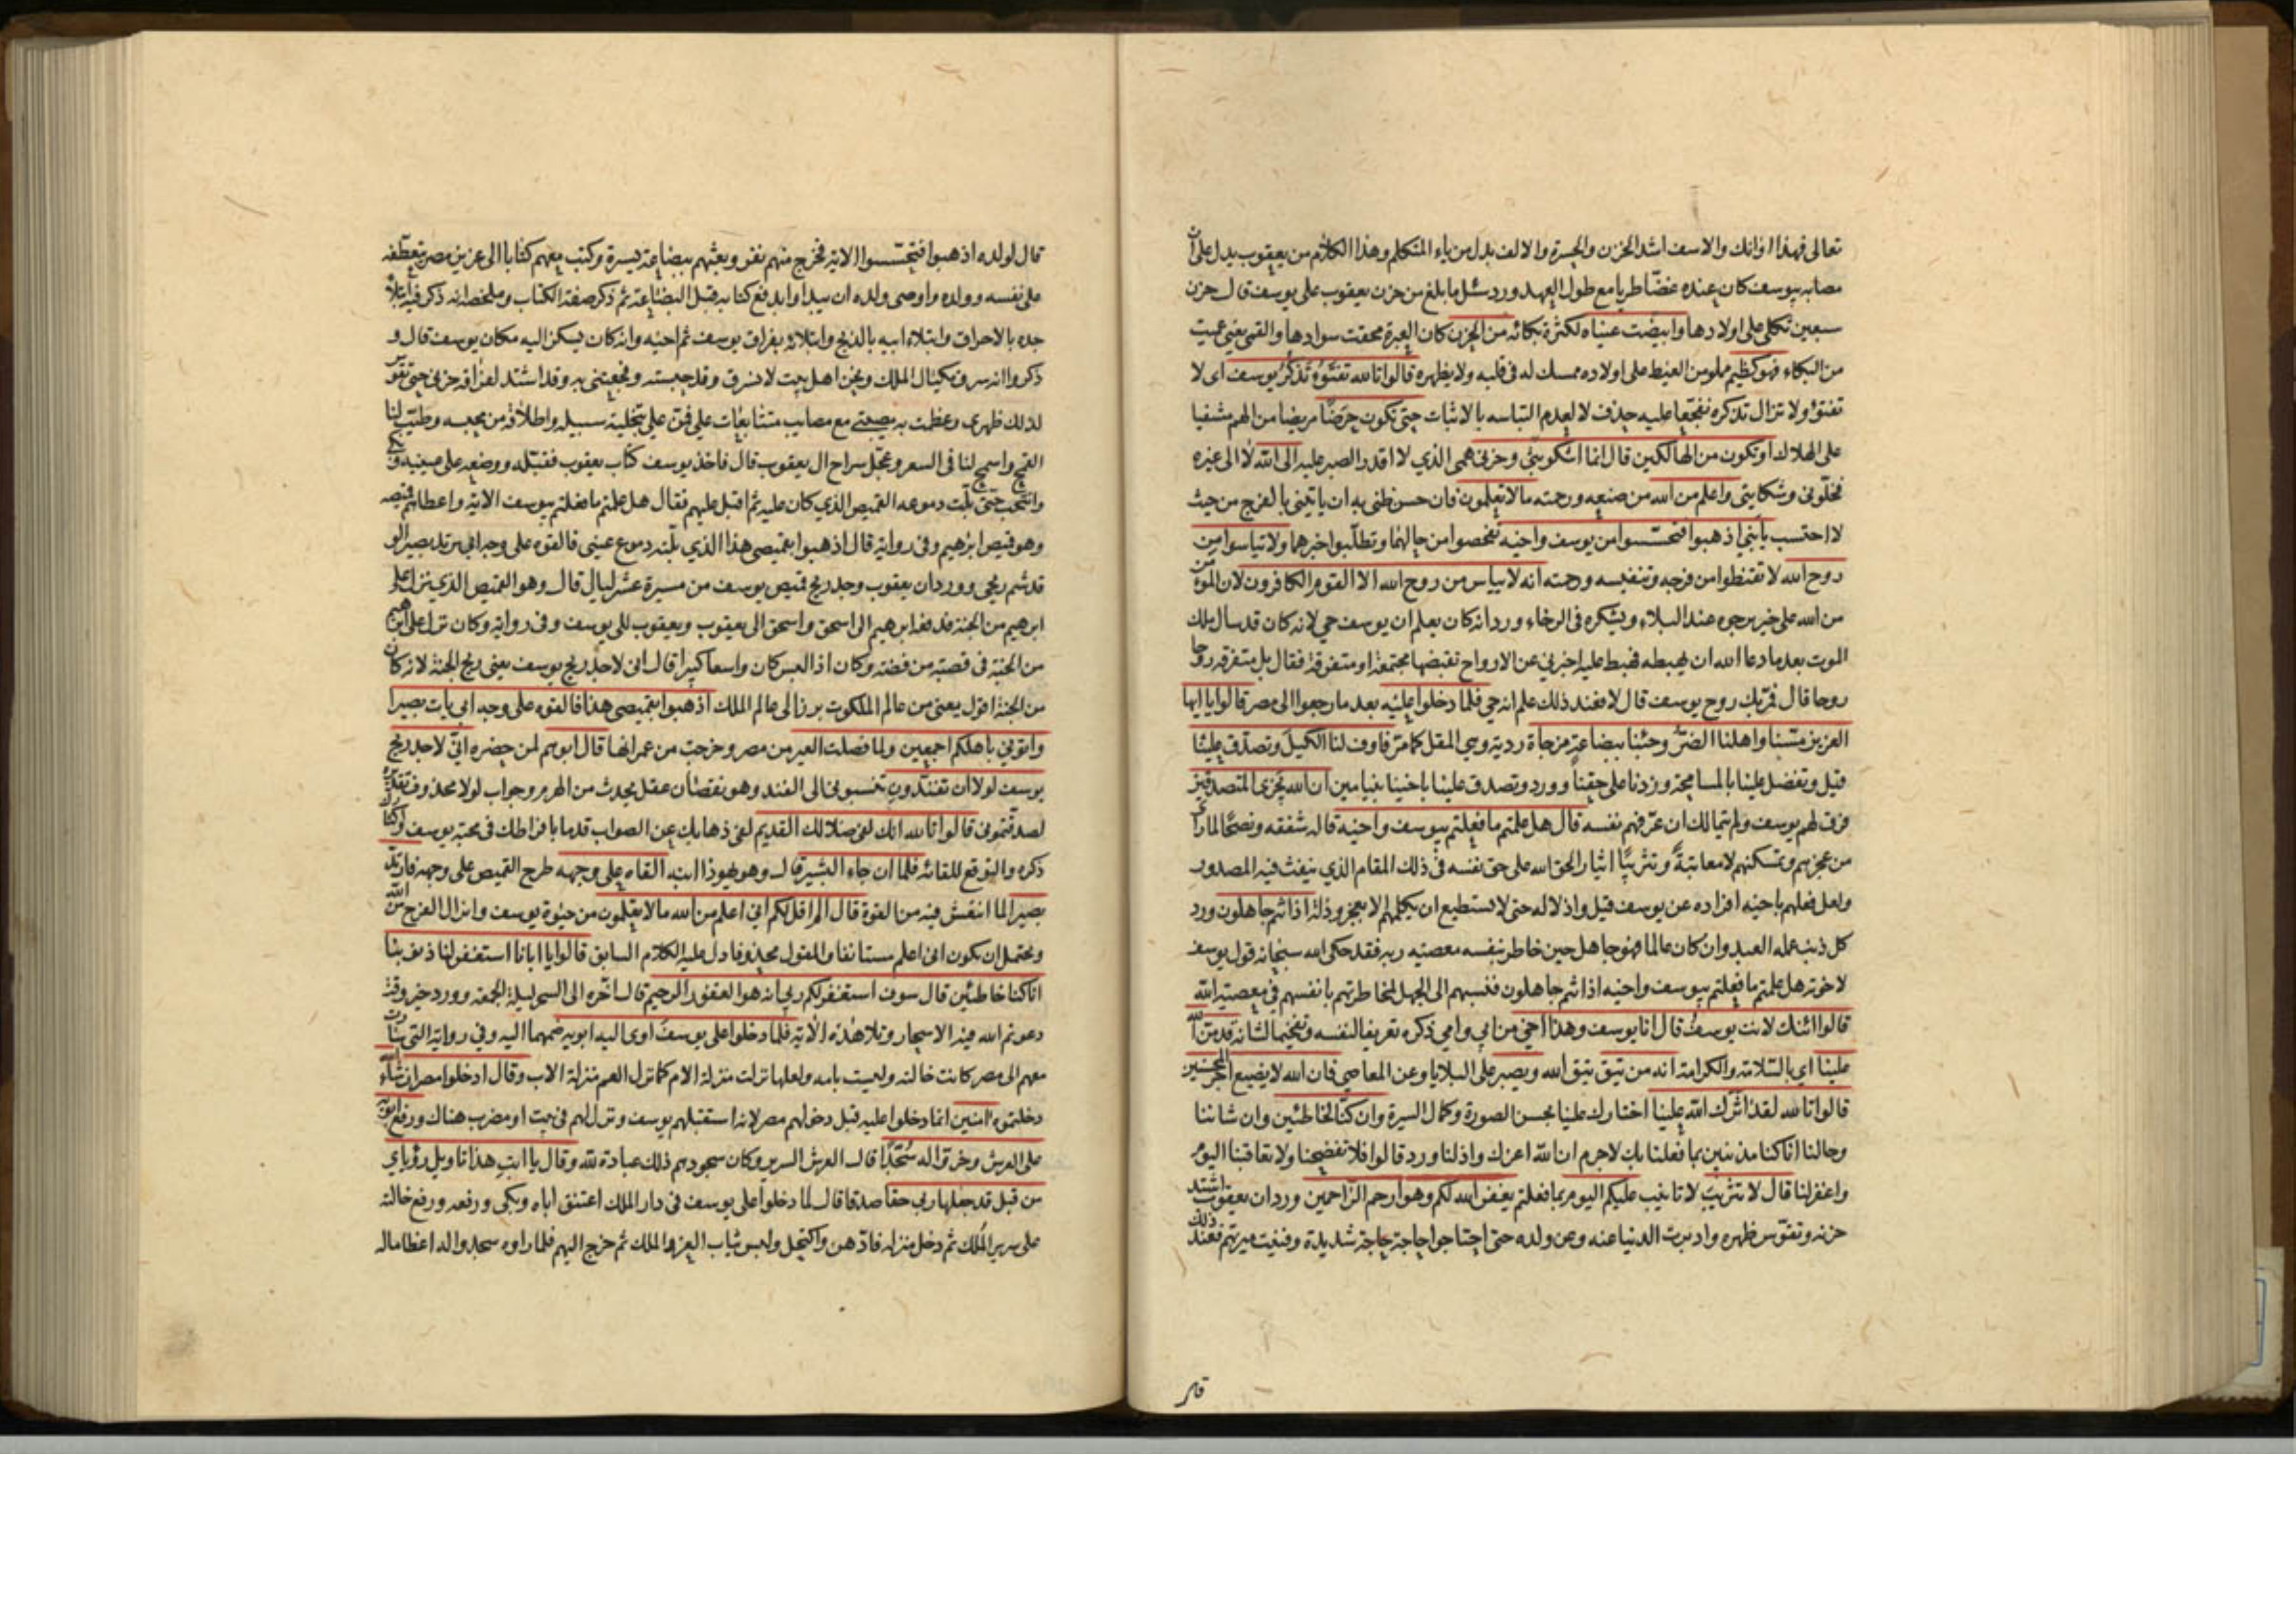 تعالى فهذا اوانك والاسف اشد الحزن والحسرة والالف بدل من ياء المتكلم وهذا الكلام من يعقوب يدل على ان
مصابه بيوسف كان عنده غضّا طريا مع طول العهد ورد سئل ما بلغ من حزن يعقوب على يوسف قال حزن
سبعين ثكلى على اولادها وابيضت عيناه لكثرة بكائه من الحزن كان العبرة محقت سوادها والقمى يعني عميت
من البكاء فهو كظيم مملو من الغيظ على اولاده ممسك له في قلبه ولا يظهره قالوا تالله تفتؤ تذكر يوسف اى لا
تفتؤ ولا تزال تذكره تفجّعا عليه حذف لا لعدم التباسه بالاثبات حتى تكون حرضًا مريضا من الهم مشفيا
على الهلاك او تكون من الهالكين قال انما اشكو بثي وحزني همي الذي لا اقدر الصبر عليه الى الله لا الى غيره
فخلّوني وشكايتي واعلم من الله من صنعه ورحمته ما لا تعلمون فان حسن ظني به ان ياتيني بالفرج من حيث
لا احتسب يا بَنيّ اذهبوا فتحسّسوا من يوسف واخيه تفحصوا من حالهما وتطلّبوا خبرهما ولا تياسوا من
روح الله لا تقنطوا من فرجه وتنفيسه ورحمته انه لا يياس من روح الله الا القوم الكافرون لان المؤمن
من الله على خير يرجوه عند البلاء ويشكره في الرخاء ورد انه كان يعلم ان يوسف حي لانه كان قد سال ملك
الموت بعد ما دعا الله ان يهبطه فهبط عليه اخبرني عن الارواح تقبضها مجتمعة او متفرقة فقال بل متفرقه روحا
روحا قال فمرّ بك روح يوسف قال لا فعند ذلك علم انه حي فلما دخلوا عليه بعد ما رجعوا الى مصر قالوا يا ايها
العزيز مسّنا واهلنا الضرّ وجئنا ببضاعة مزجاة ردية وهي المقل كما مرّ فاوف لنا الكيل وتصدّق علينا
قيل وتفضل علينا بالمسامحة وزدنا على حقنا وورد وتصدق علينا باخينا بنيامين ان الله يجزي المتصدقين
فرق لهم يوسف ولم يتمالك ان عرّفهم نفسه قال هل علمتم ما فعلتم بيوسف واخيه قاله شفقه ونصحًا لما راى
من عجزهم وتمسكنهم لا معاتبةً وتثريبًا ايثارا لحق الله على حق نفسه في ذلك المقام الذي ينفث فيه المصدور
ولعل فعلهم باخيه افراده عن يوسف قيل واذلاله حتى لا يستطيع ان يكلمهم الا بعجز وذلّة اذ انتم جاهلون ورد
كل ذنب عمله العبد وان كان عالما فهو جاهل حين خاطر بنفسه معصية ربه فقد حكى الله سبحانه قول يوسف
لاخوته هل علمتم ما فعلتم بيوسف واخيه اذ انتم جاهلون فنسبهم الى الجهل لمخاطرتهم بانفسهم في معصية الله
قالوا ائنك لانت يوسف قال انا يوسف وهذا اخي من ابي وامي ذكره تعريفا لنفسه وتفخيما لشانه قد منّ الله
علينا اي بالسّلامة والكرامة انه من يتق يتق الله ويصبر على البلايا وعن المعاصي فان الله لا يضيع اجر المحسنين
قالوا تالله لقد اثرك الله علينا اختارك علينا بحسن الصورة وكمال السيرة وان كنّا لخاطئين وان شاننا
وحالنا انا كنا مذنبين بما فعلنا بك لاجرم ان الله اعزك واذلنا ورد قالوا فلا تفضحنا ولا تعاقبنا اليوم
واغفر لنا قال لا تثريب لا تانيب عليكم اليوم بما فعلتم يغفر الله لكم وهو ارحم الراحمين ورد ان يعقوب اشتد
حزنه وتقوّس ظهره وادبرت الدنيا عنه وعن ولده حتى احتاجوا حاجة حاجة شديدة وفنيت ميرتهم فعند ذلك
قال
قال لولده اذهبوا فتحسّسوا الاية فخرج منهم نفر وبعثهم ببضاعة يسيرة وكتب معهم كتابا الى عزيز مصر يتعطّفه
على نفسه وولده واوصى ولده ان يبداوا بدفع كتابه قبل البضاعة ثم ذكر صفة الكتاب وملخصه انه ذكر فيه ابتلاء
جده بالاحراق وابتلاء ابيه بالذبح وابتلائه بفراق يوسف ثم اخيه وانه كان يسكن اليه مكان يوسف قال و
ذكروا انه سرق مكيال الملك ونحن اهل بيت لا نسرق وقد حبسته وفجعتني به وقد اشتد لفراقه حزني حتى تقوس
لذلك ظهري وعظمت به مصيبتي مع مصايب متتابعات علي فمنّ علي بتخلية سبيله واطلاقه من حبسه وطيّب لنا
القمح واسمح لنا في السعر وعجّل سراح ال يعقوب قال فاخذ يوسف كتاب يعقوب فقبّله ووضعه على عينيه وبكى
وانتحب حتى بلّت دموعه القميص الذي كان عليه ثم اقبل عليهم فقال هل علمتم ما فعلتم بيوسف الاية واعطاهم قميصه
وهو قميص ابرهيم وفي رواية قال اذهبوا بقميصي هذا الذي بلّته دموع عيني فالقوه على وجه ابي يرتد بصيرا لو
قد شم ريحي وورد ان يعقوب وجد ريح قميص يوسف من مسيرة عشر ليال قال وهو القميص الذي نزل على
ابرهيم من الجنة فدفعه ابرهيم الى اسحق واسحق الى يعقوب ويعقوب الى يوسف وفي رواية وكان نزل على ابرهيم
من الجنة في قصبة من فضة وكان اذا لبس كان واسعا كبيرا قال اني لاجد ريح يوسف يعني ريح الجنة لانه كان
من الجنة اقول يعني من عالم الملكوت برز الى عالم الملك اذهبوا بقميصي هذا فالقوه على وجه ابي يات بصيرا
واتوني باهلكم اجمعين ولما فصلت العير من مصر وخرجت من عمرانها قال ابوهم لمن حضره انيّ لاجد ريح
يوسف لولا ان تفنّدون تنسبوني الى الفند وهو نقصان عقل يحدث من الهرم وجواب لولا محذوف تقديره
لصدقتموني قالوا تالله انك لفي ضلالك القديم لفي ذهابك عن الصواب قدما بافراطك في محبة يوسف واكثار
ذكره والتوقع للقائه فلما ان جاء البشير قال وهو يهوذا ابنه القاه على وجهه طرح القميص على وجهه فارتدّ
بصيرا لما انتعش فيه من القوة قال الم اقل لكم اني اعلم من الله ما لا تعلمون من حيوة يوسف وانزال الفرج من الله
ويحتمل ان يكون اني اعلم مستانفا والمقول محذوفا دل عليه الكلام السابق قالوا يا ابانا استغفر لنا ذنوبنا
انا كنا خاطئين قال سوف استغفر لكم ربي انه هو الغفور الرحيم قال اخّره الى السحر ليلة الجمعة وورد خير وقت
دعوتم الله فيه الاسحار وتلا هذه الاية فلما دخلوا على يوسف اوى اليه ابويه ضمهما اليه وفي رواية التي سارت
معهم الى مصر كانت خالته وليست بامه ولعلها نزلت منزلة الام كما نزل العم منزلة الاب وقال ادخلوا مصر ان شاء الله
دخلتموه امنين انما دخلوا عليه قبل دخولهم مصر لانه استقبلهم يوسف ونزل لهم في بيت او مضرب هناك ورفع ابويه
على العرش وخرّوا له سُجّدًا قال العرش السرير وكان سجودهم ذلك عبادة لله وقال يا ابتِ هذا تاويل رؤياي
من قبل قد جعلها ربي حقا صدقا قال لما دخلوا على يوسف في دار الملك اعتنق اباه وبكى ورفعه ورفع خالته
على سرير المُلك ثم دخل منزله فادّهن واكتحل ولبس ثياب العز والملك ثم خرج اليهم فلما راوه سجدوا له اعظاما له